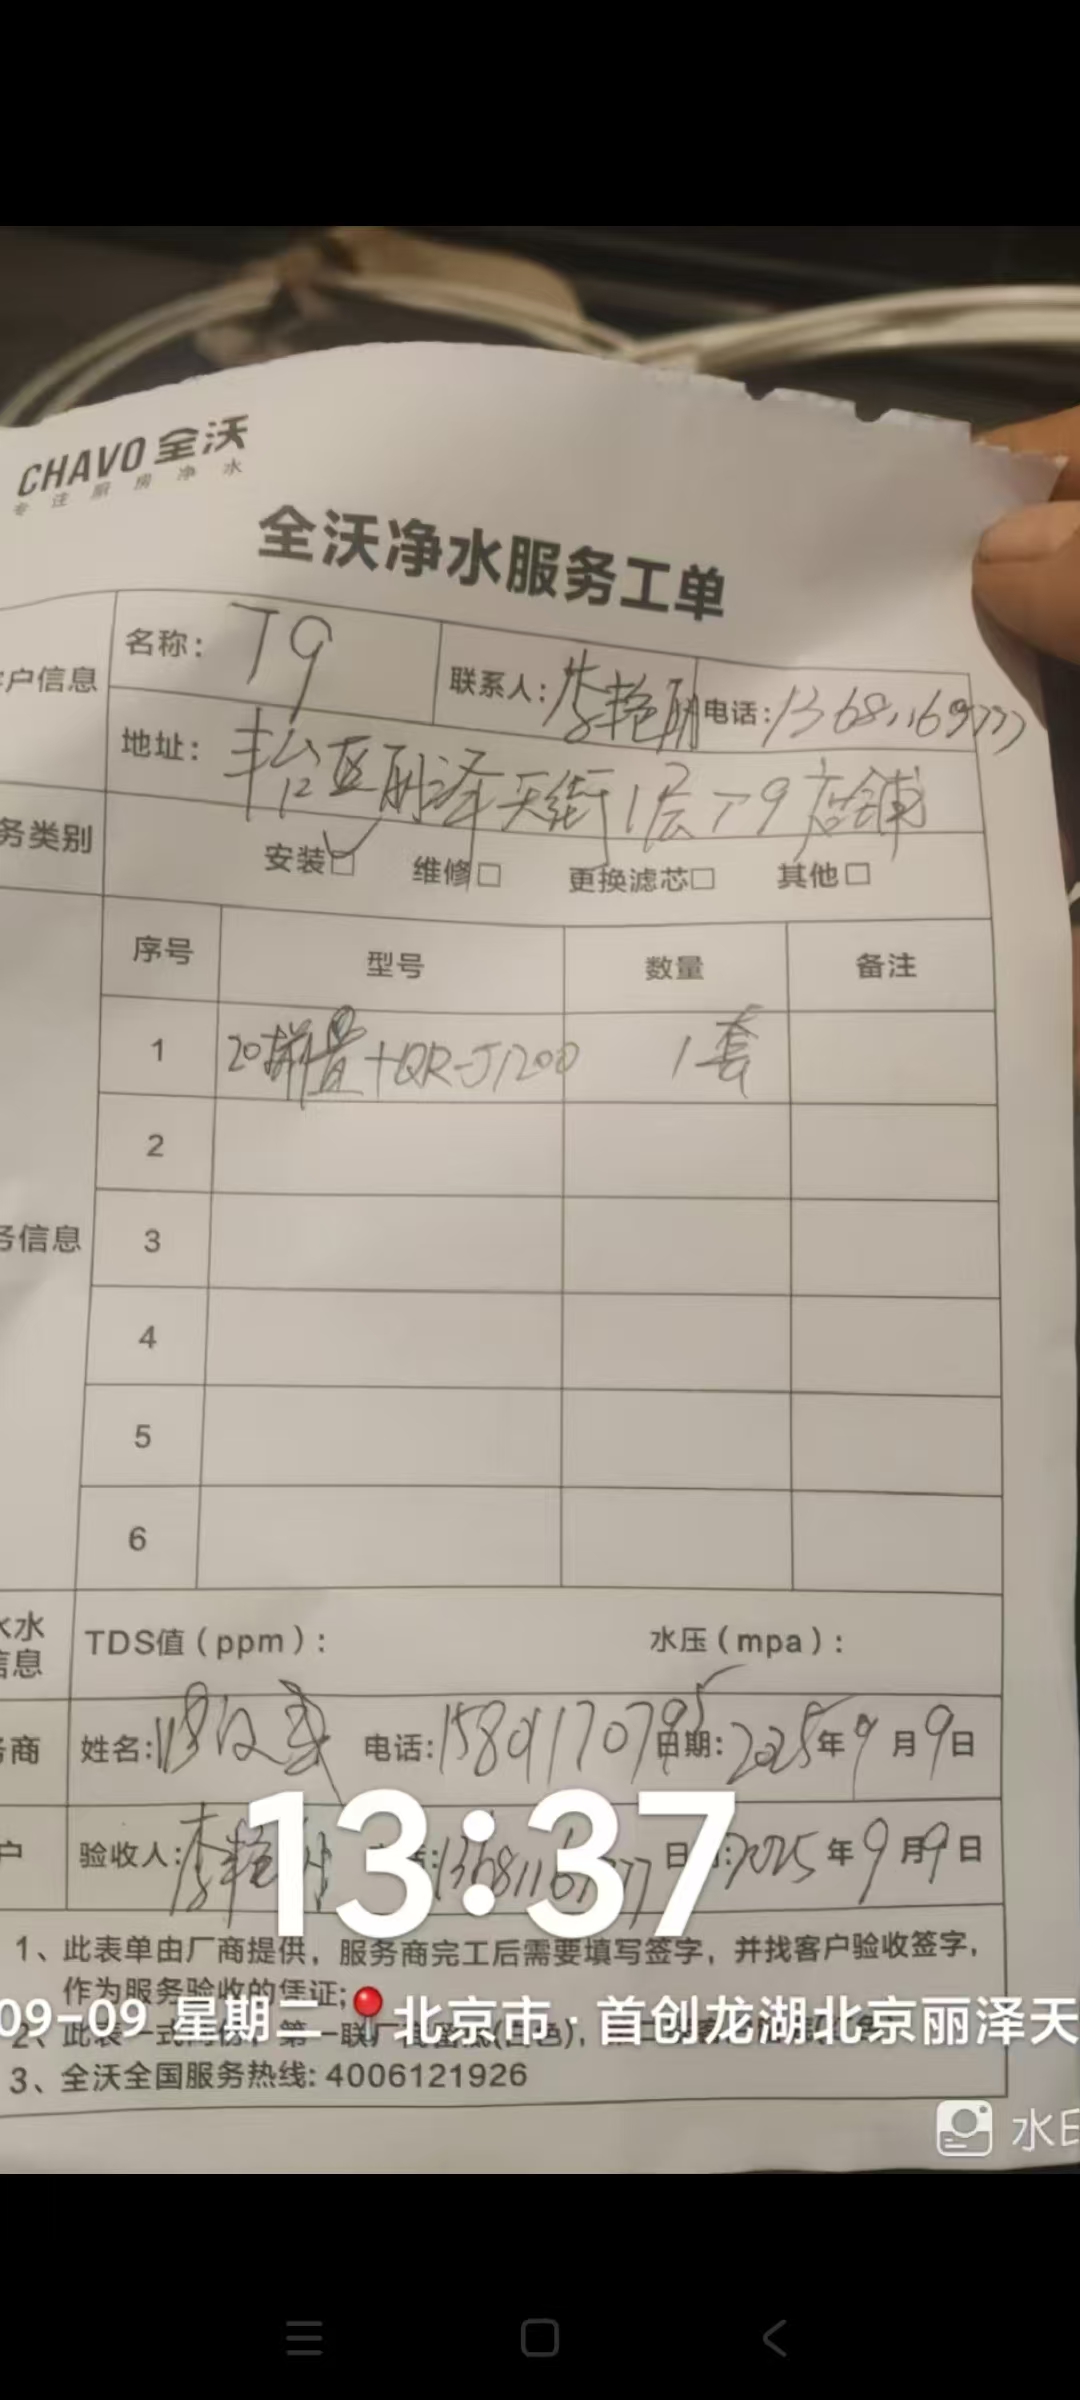 CHAVO 全沃
专注厨房净水
全沃净水服务工单
户信息 名称: T9 联系人: 李艳丽 电话:
地址: 丰台区丽泽天街1层T9店铺
务类别 安装☑ 维修□ 更换滤芯□ 其他□
序号 型号 数量 备注
1 20前置+QR-J1200 1套
2
务信息 3
4
5
6
水
信息 TDS值（ppm）: 水压（mpa）:
务商 姓名: 电话: 日期: 2025年9月9日
户 验收人: 李艳丽 日 2025年9月9日
13:37
1、此表单由厂商提供，服务商完工后需要填写签字，并找客户验收签字，
作为服务验收的凭证;
09-09 星期二 北京市·首创龙湖北京丽泽天
2、此表一式两份，第一联厂商
3、全沃全国服务热线: 4006121926
水印